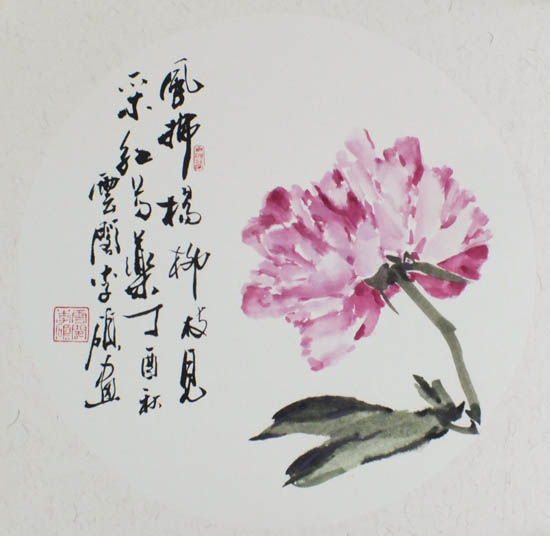 風拂楊柳枝見
采紅芍藥丁酉秋
雲閣李碩畫